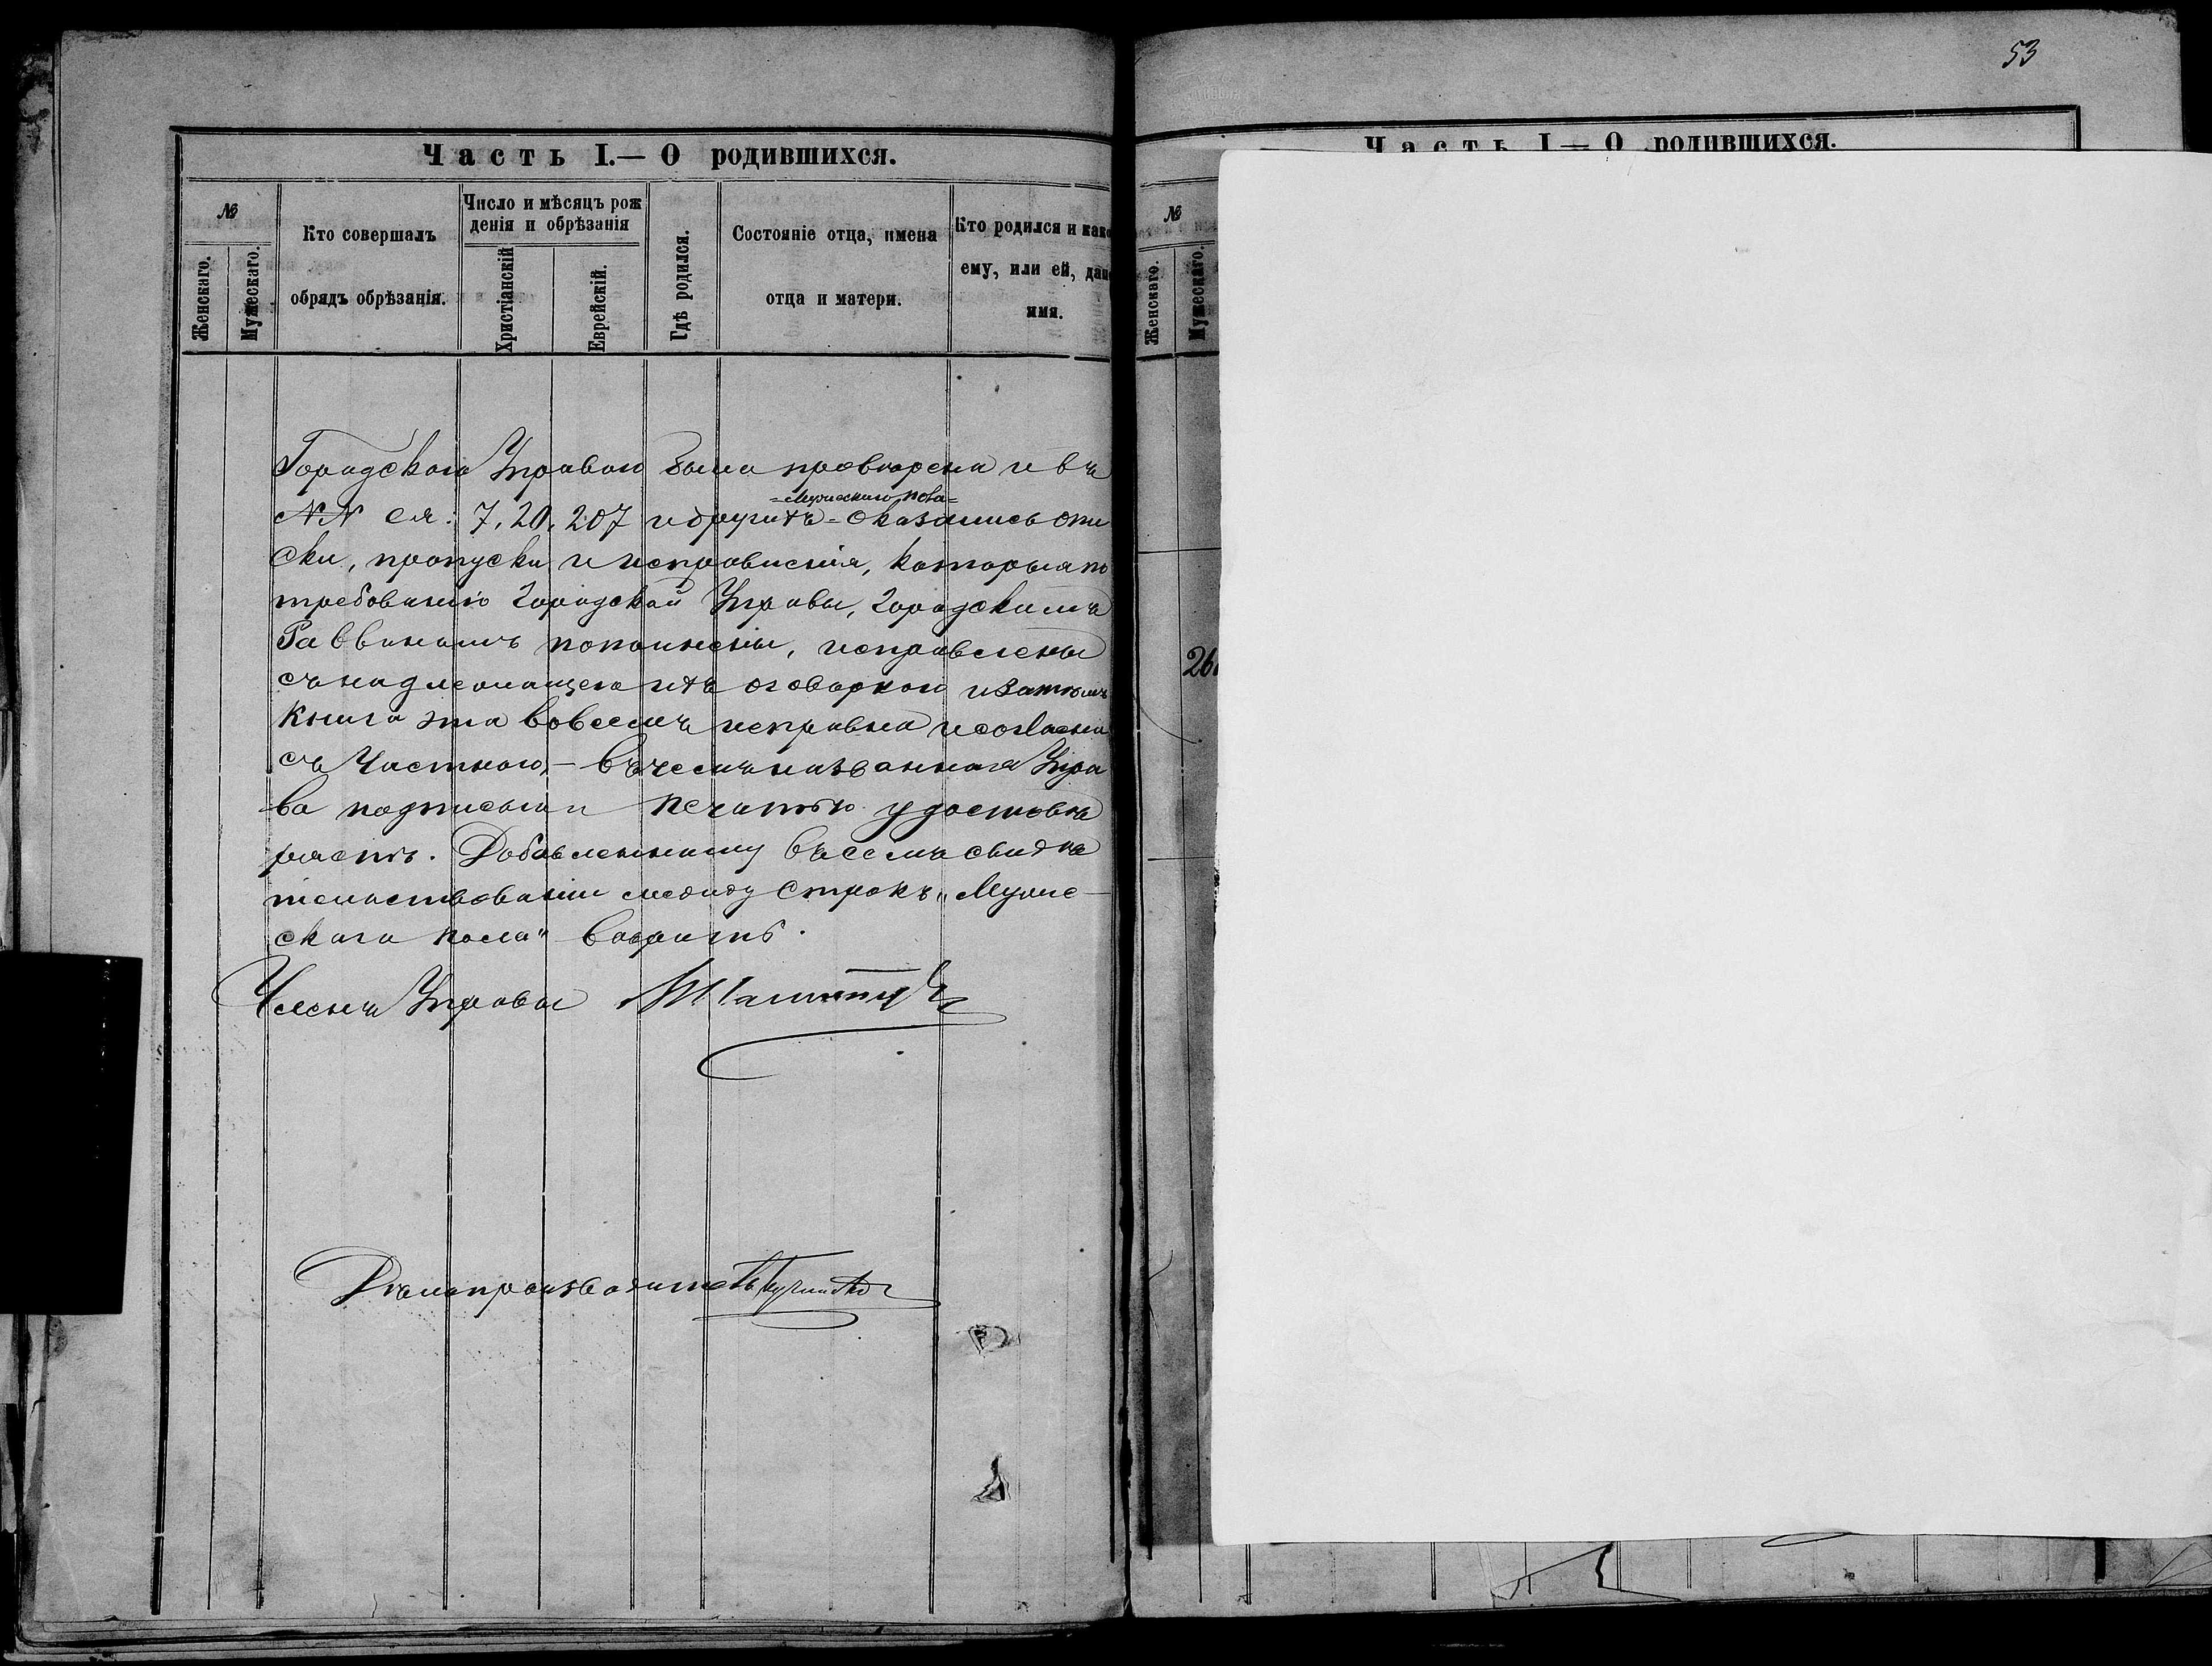 53
Часть I.— О родившихся.
№
Женскаго.
Мужескаго.
Кто совершалъ
обрядъ обрѣзанія.
Число и мѣсяцъ рож
денія и обрѣзанія
Христіанскій
Еврейскій.
Гдѣ родился.
Состояніе отца, имена
отца и матери.
Кто родился и как
ему, или ей, дан
имя.
Городскою Управою была провѣрена и въ
=Мужескаго пола=
NN ея: 7, 20, 207 и другихъ = оказались опи
ски, пропуски и исправленія, которыя по
требованію Городской Управы, Городскимъ
Раввиномъ пополнены, исправлены
съ надлежащею ихъ оговоркою и затѣмъ
книга эта во всемъ исправна и согласна
съ Частною, — въ чемъ названная Упра
ва подписью и печатью удостовѣ
ряетъ. Добавленному въ семъ свидѣ
тельствованіи между строкъ „Муже-
скаго пола" вѣрить.
Членъ Управы
Дѣлопроизводитель
Часть I — О родившихся.
№
Женскаго.
Мужескаго.
26